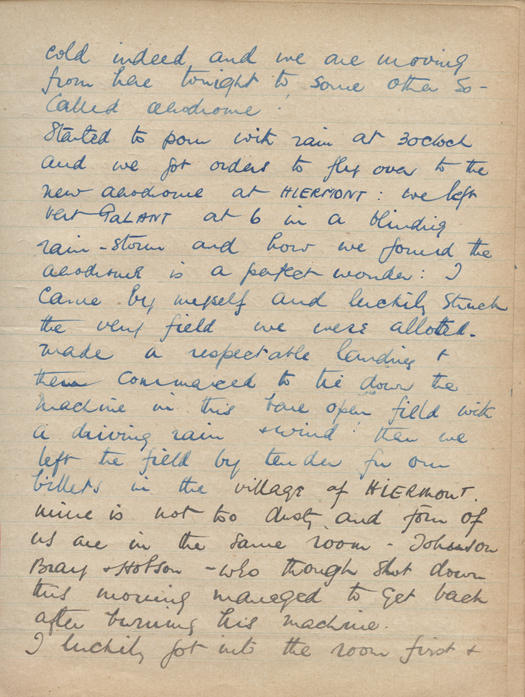 cold indeed and we are moving
from here tonight to some other so-
called aerodrome!
Started to pour with rain at 3 oclock
and we got orders to fly over to the
new aerodrome at HIERMONT: we left
Vert GALANT at 6 in a blinding
rain-storm and how we found the
aerodrome is a perfect wonder: I
came by myself and luckily struck
the very field we were alloted.
made a respectable landing &
then commenced to tie down the
machine in this bare open field with
a driving rain & wind! then we
left the field by tender for our
billets in the village of HIERMONT.
mine is not too dusty and four of
us are in the same room - Johnson
Bray & Hobson - who though shot down
this morning managed to get back
after burning his machine.
I luckily got into the room first &